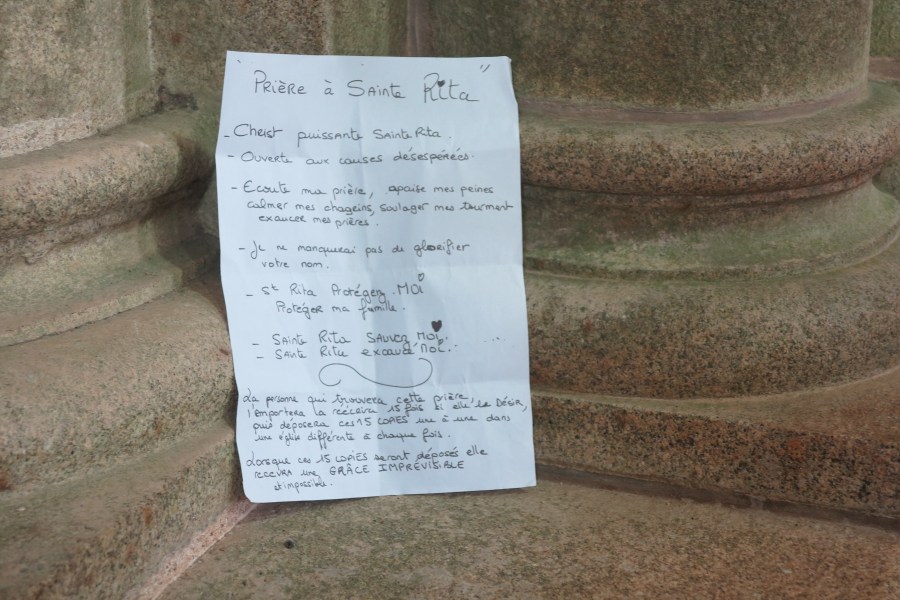 " Prière à Sainte Rita "
- Cheist puissante Sainte Rita.
- Ouverte aux causes désespérées.
- Ecoute ma prière, apaise mes peines
calmer mes chageins, soulager mes tourment
exaucer mes prières.
- Je ne manquerai pas de glorifier
votre nom.
- St Rita Protéger Moi
Protéger ma famille.
- Sainte Rita SAUVEZ MOi.
- Sante Rita exauce MOi.
La personne qui trouvera cette prière,
l'emportera la réécrira 15 fois si elle le DÉSIR,
puis déposera ces 15 COPIES une à une dans
une église différente à chaque fois.
Lorsque ces 15 COPIES seront déposés elle
recevra une GRÂCE IMPREVISIBLE
et impossible.